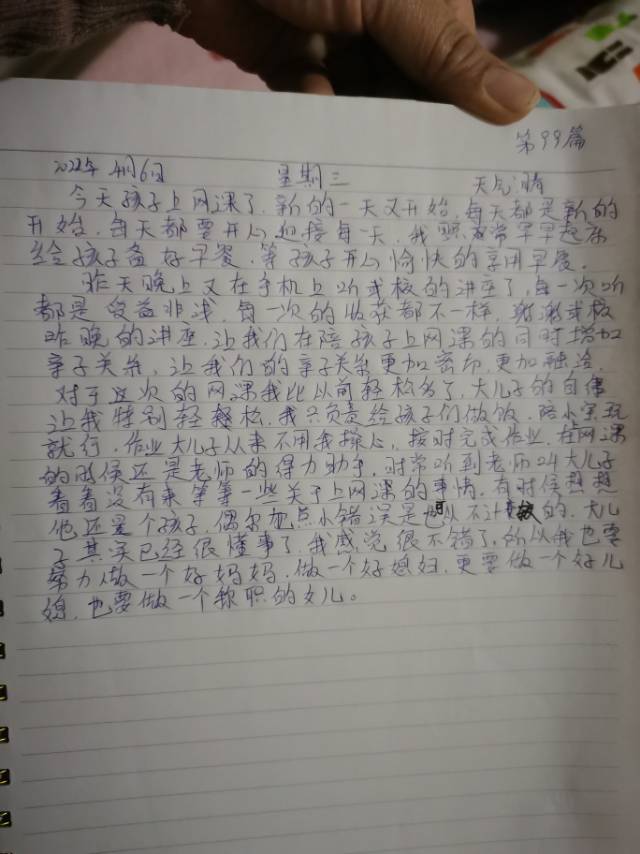 第99篇
2022年4月6日 星期三 天气:晴
今天孩子上网课了,新的一天又开始,每天都是新的
开始,每天都要开心迎接每一天,我照常早早起床
给孩子备好早餐,等孩子开心愉快的享用早餐。
昨天晚上又在手机上听或校的讲座了,每一次听
都是受益非浅,每一次的收获都不一样,谢谢或校
昨晚的讲座,让我们在陪孩子上网课的同时增加
亲子关系,让我们的亲子关系更加密切,更加融洽
对于这次的网课我比以前轻松多了,大儿子的自律
让我特别轻松,我只负责给孩子们做饭,陪小宝玩
就行,作业大儿子从来不用我操心,按时完成作业,在网课
的时候还是老师的得力助手,时常听到老师叫大儿子
看看没有来等等一些关于上网课的事情,有时候想想
他还是个孩子,偶尔犯点小错误是可以不计较的,大儿
子其实已经很懂事了,我感觉很不错了,所以我也要
努力做一个好妈妈,做一个好媳妇,更要做一个好儿
媳,也要做一个称职的女儿。